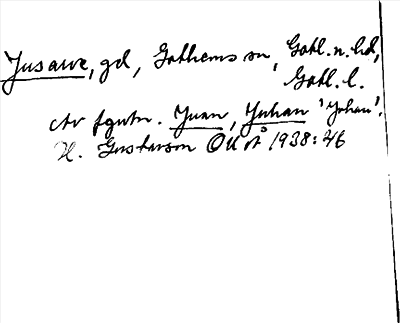 Jusarve, gd, Gothems sn, Gotl. n. hd,
Gotl. l.
av fgutn. Juan, Juhan 'Johan'.
H. Gustavson OUÅ 1938: 46